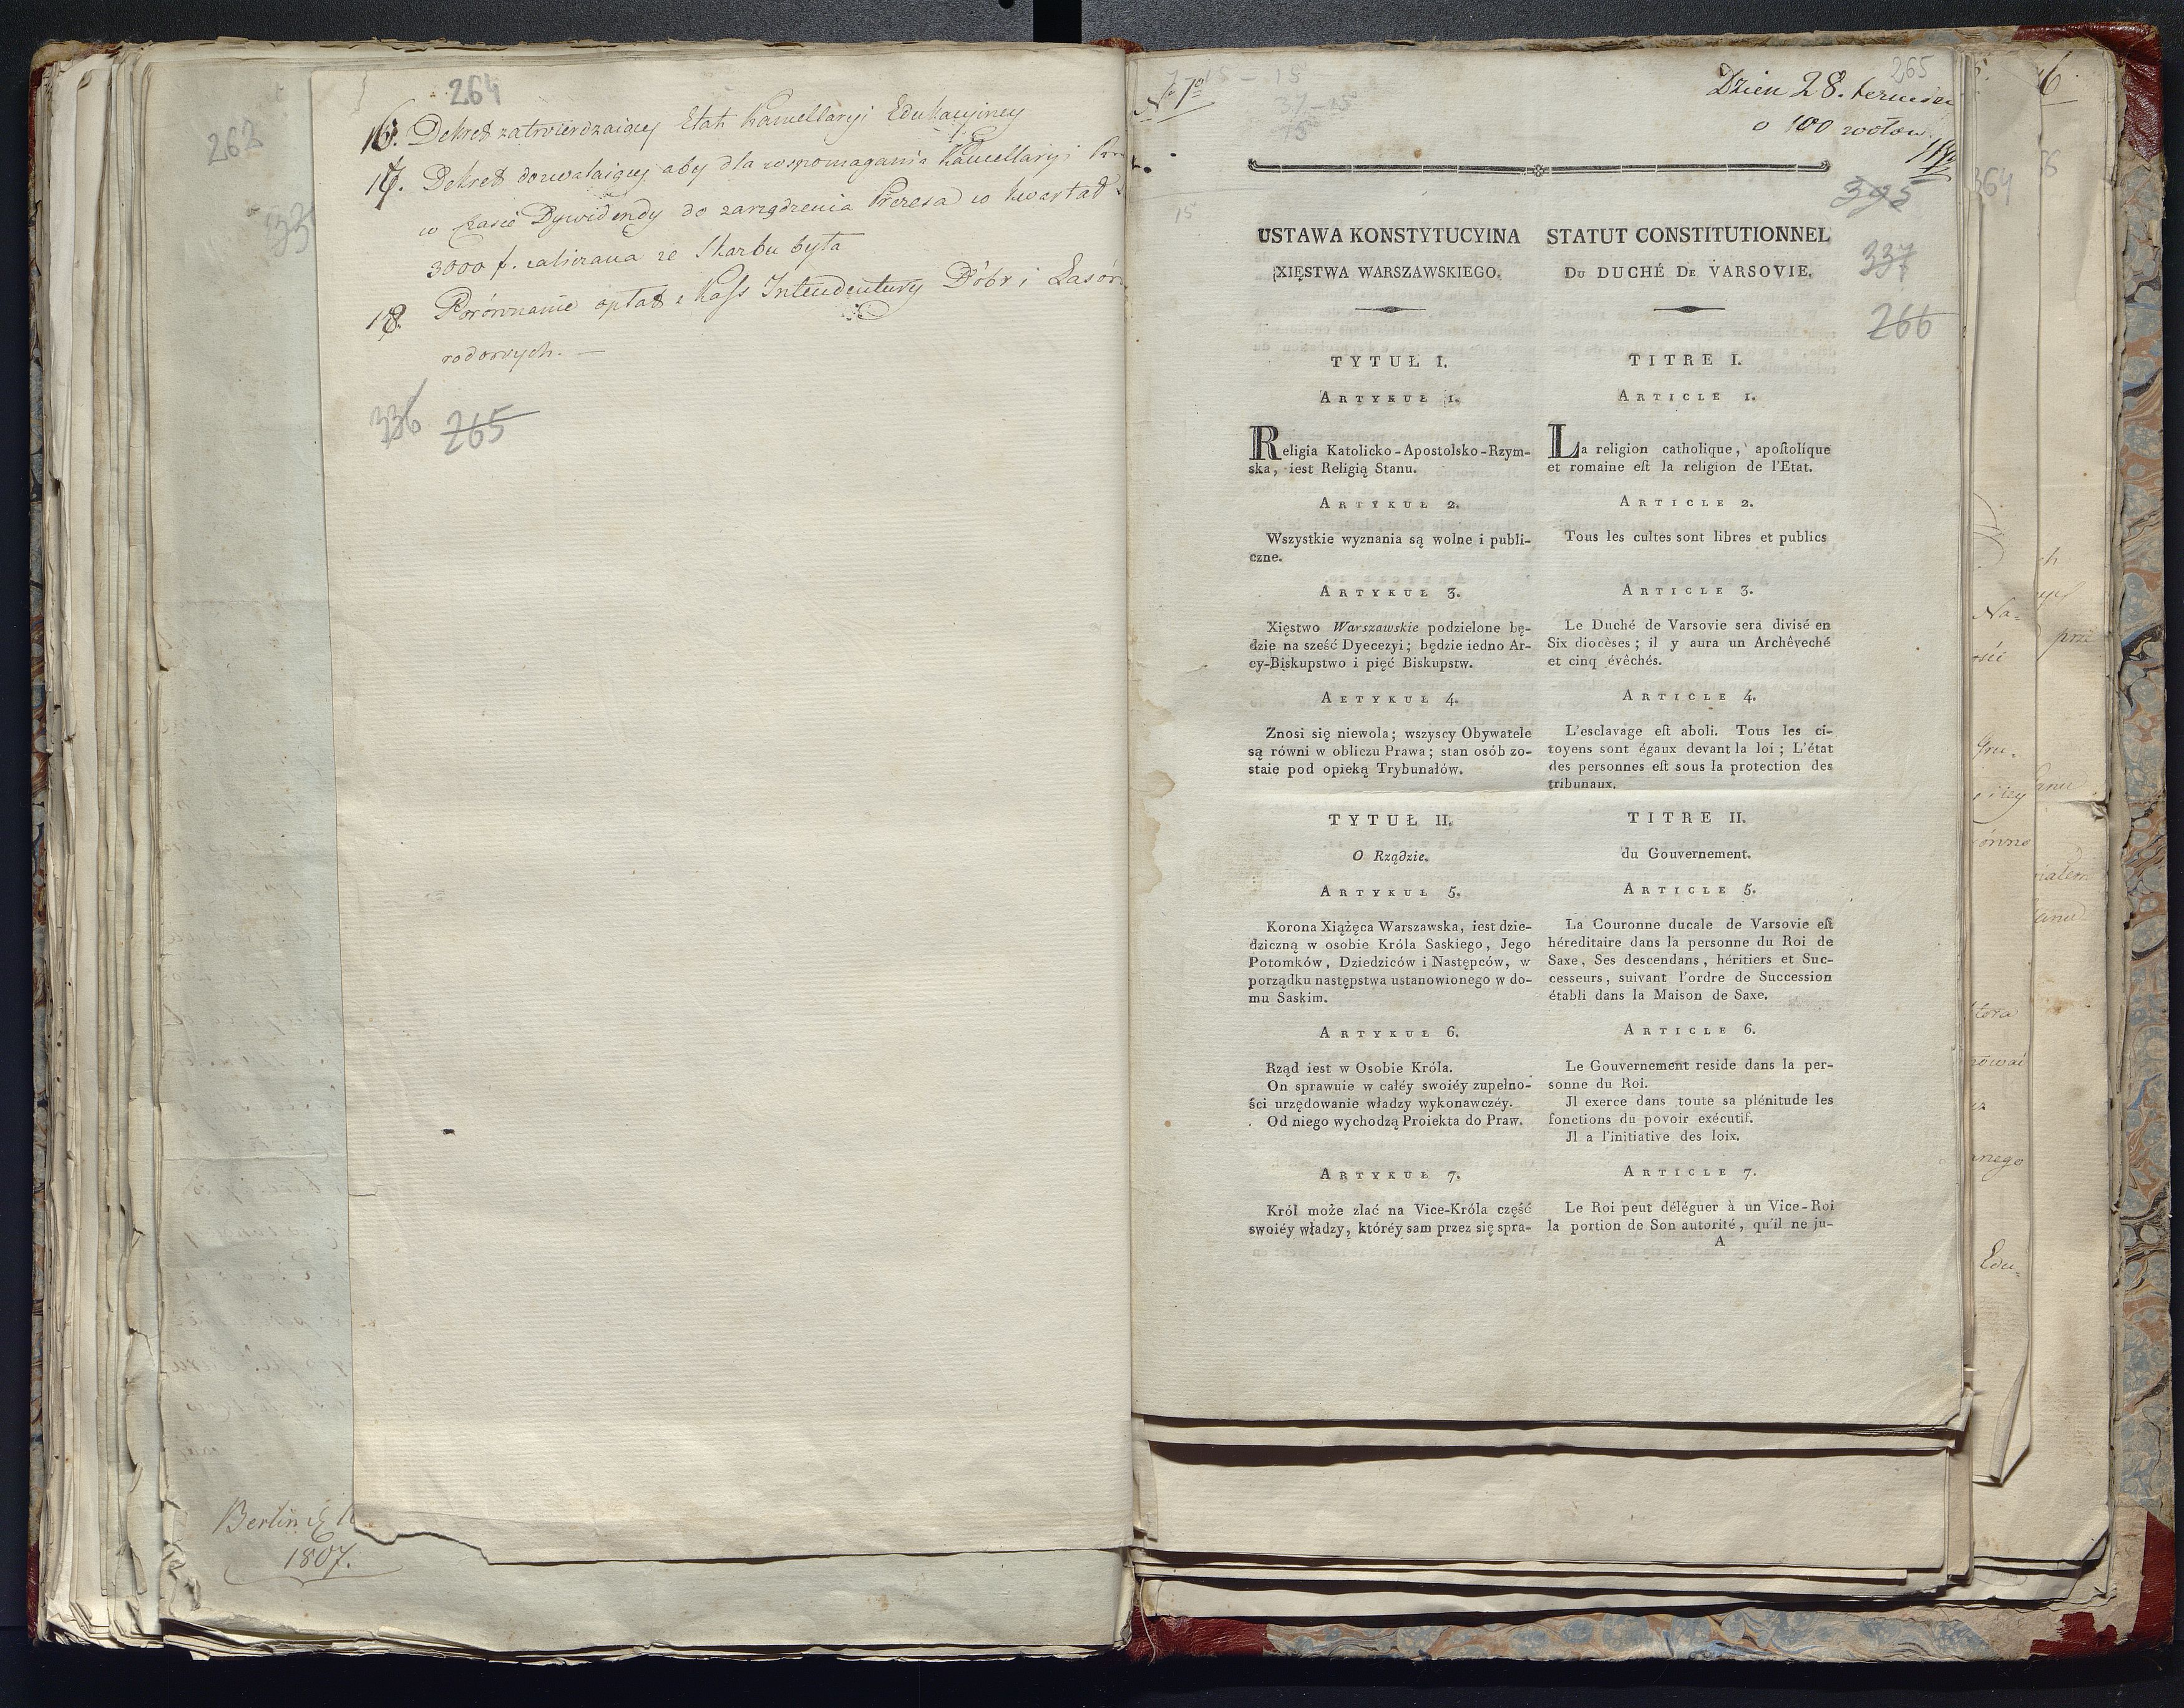 264
262
16. Dekret zatwierdzaiący Etat Kancellaryi Edukacyiney
17. Dekret dozwalaiący aby dla wspomagania Kancellaryi
w czasie Dywidendy do zarządzenia Prezesa w kwartał
3000 f. zabierana ze Skarbu była
18. Porównanie opłat z Kass Intendentury Dóbr i Lasów
rodowych. —
336 265
Berlin
1807.
265
Dzien 28.
o 100 wołow.
395
337
266
15
USTAWA KONSTYTUCYINA
XIĘSTWA WARSZAWSKIEGO.
TYTUŁ I.
ARTYKUŁ 1.
Religia Katolicko-Apostolsko-Rzym-
ska, iest Religią Stanu.
ARTYKUŁ 2.
Wszystkie wyznania są wolne i publi-
czne.
ARTYKUŁ 3.
Xięstwo Warszawskie podzielone bę-
dzie na sześć Dyecezyi; będzie iedno Ar-
cy-Biskupstwo i pięć Biskupstw.
AETYKUŁ 4.
Znosi się niewola; wszyscy Obywatele
są równi w obliczu Prawa; stan osób zo-
staie pod opieką Trybunałów.
TYTUŁ II.
O Rządzie.
ARTYKUŁ 5.
Korona Xiążęca Warszawska, iest dzie-
dziczną w osobie Króla Saskiego, Jego
Potomków, Dziedziców i Następców, w
porządku następstwa ustanowionego w do-
mu Saskim.
ARTYKUŁ 6.
Rząd iest w Osobie Króla.
On sprawuie w całéy swoiéy zupełno-
ści urzędowanie władzy wykonawczéy.
Od niego wychodzą Proiekta do Praw.
ARTYKUŁ 7.
Król może zlać na Vice-Króla część
swoiéy władzy, któréy sam przez się spra-
STATUT CONSTITUTIONNEL
DU DUCHÉ DE VARSOVIE.
TITRE I.
ARTICLE 1.
La religion catholique, apoſtolique
et romaine eſt la religion de l'Etat.
ARTICLE 2.
Tous les cultes sont libres et publics
ARTICLE 3.
Le Duché de Varsovie sera divisé en
Six diocèses; il y aura un Archêveché
et cinq évêchés.
ARTICLE 4.
L'esclavage eſt aboli. Tous les ci-
toyens sont égaux devant la loi; L'état
des personnes eſt sous la protection des
tribunaux.
TITRE II.
du Gouvernement.
ARTICLE 5.
La Couronne ducale de Varsovie eſt
héreditaire dans la personne du Roi de
Saxe, Ses descendans, héritiers et Suc-
cesseurs, suivant l'ordre de Succession
établi dans la Maison de Saxe.
ARTICLE 6.
Le Gouvernement reside dans la per-
sonne du Roi.
Jl exerce dans toute sa plénitude les
fonctions du povoir exécutif.
Jl a l'initiative des loix.
ARTICLE 7.
Le Roi peut déléguer à un Vice-Roi
la portion de Son autorité, qu'il ne ju-
A